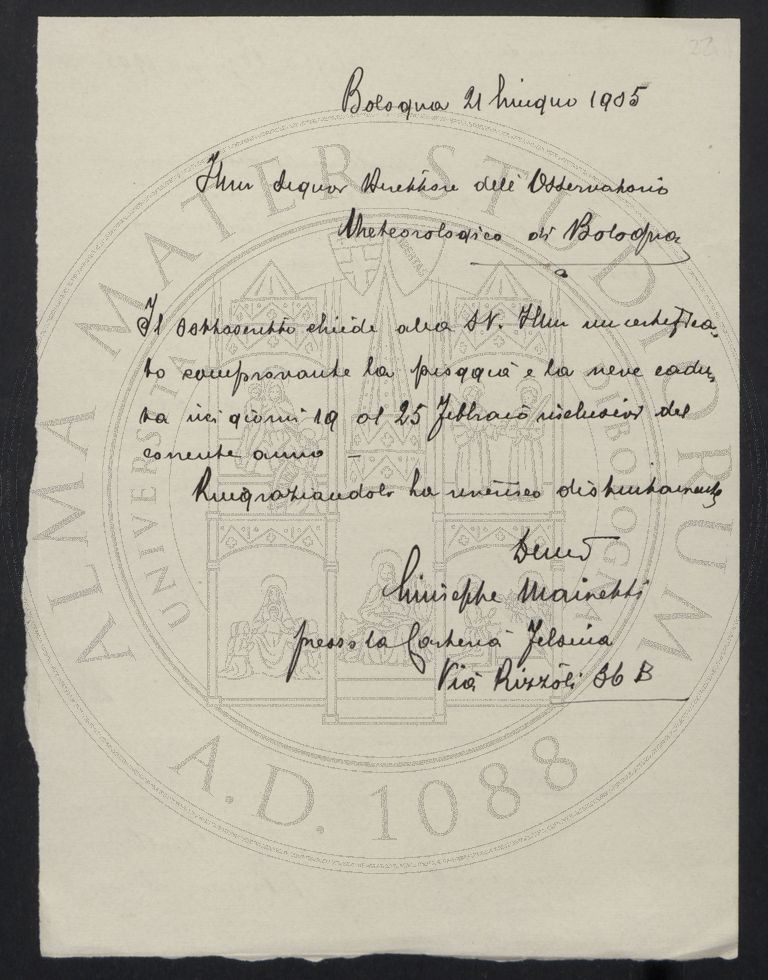 22
Bologna 21 Giugno 1905
Illmo Signor Direttore dell'Osservatorio
Meteorologico di Bologna
Il sottoscritto chiede alla SV. Illma un certifica-
to comprovante la pioggia e la neve cadu-
ta nei giorni 19 al 25 Febbraio inclusivi del
corrente anno —
Ringraziandola La riverisco distintamente
Devmo
Giuseppe Mainetti
presso la Carteria Felsinia
Via Rizzoli 36 B
ALMA MATER STUDIORUM
UNIVERSITA DI BOLOGNA
LIBERTAS
A.D. 1088